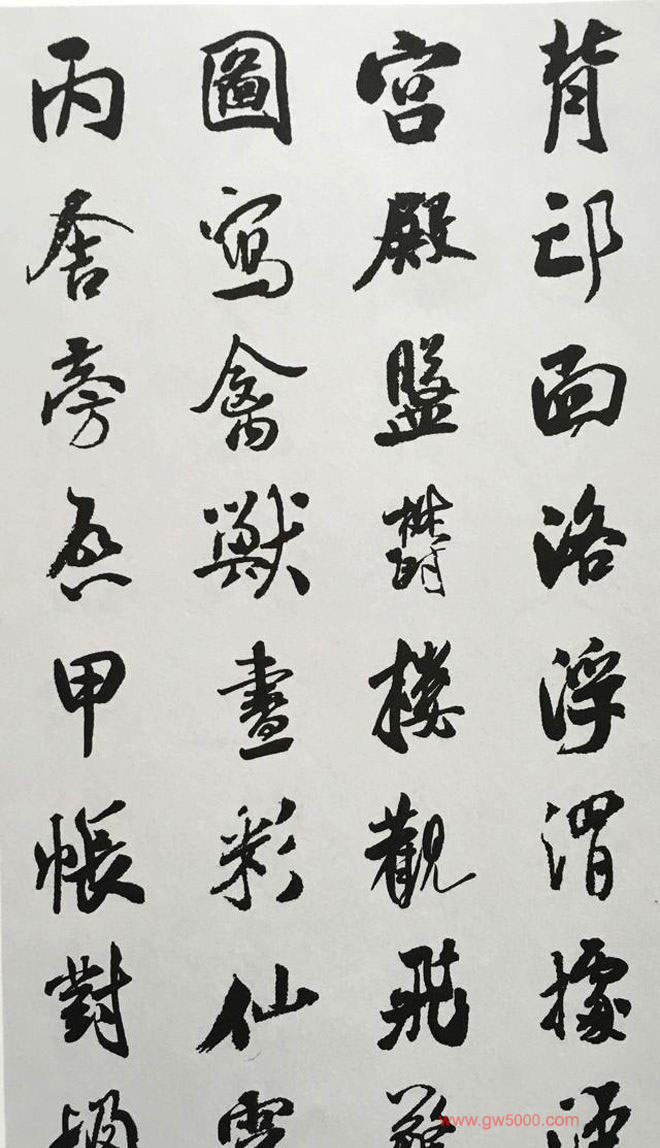 背邙面洛浮渭據涇
宮殿盤鬱樓觀飛驚
圖寫禽獸畫彩仙靈
丙舍旁啟甲帳對楹
www.gw5000.com